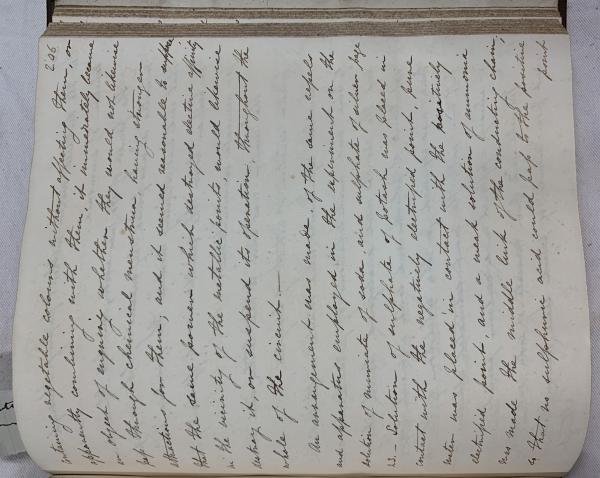 236
entering vegetable colours without affecting them, or
apparently combining with them it immediately became
an object of enquiry whether they would not likewise
pass through chemical menstrua having stronger
attractions for them; and it seemed reasonable to suppose
that the same power which destroyed elective affinity
in the vicinity of the metallic points, would likewise
destroy it, or suspend its operation, throughout the
whole of the circuit —
An arrangement was made, of the same vessels
and apparatus employed in the experiment on the
solution of muriate of soda and sulphate of silver page
12. – Solution of sulphate of potash was placed in
contact with the negatively electrified point, pure
water was placed in contact with the positively
electrified point, and a weak solution of ammonia
was made the middle link of the conducting chain;
so that no sulphuric acid could pass to the positive
point